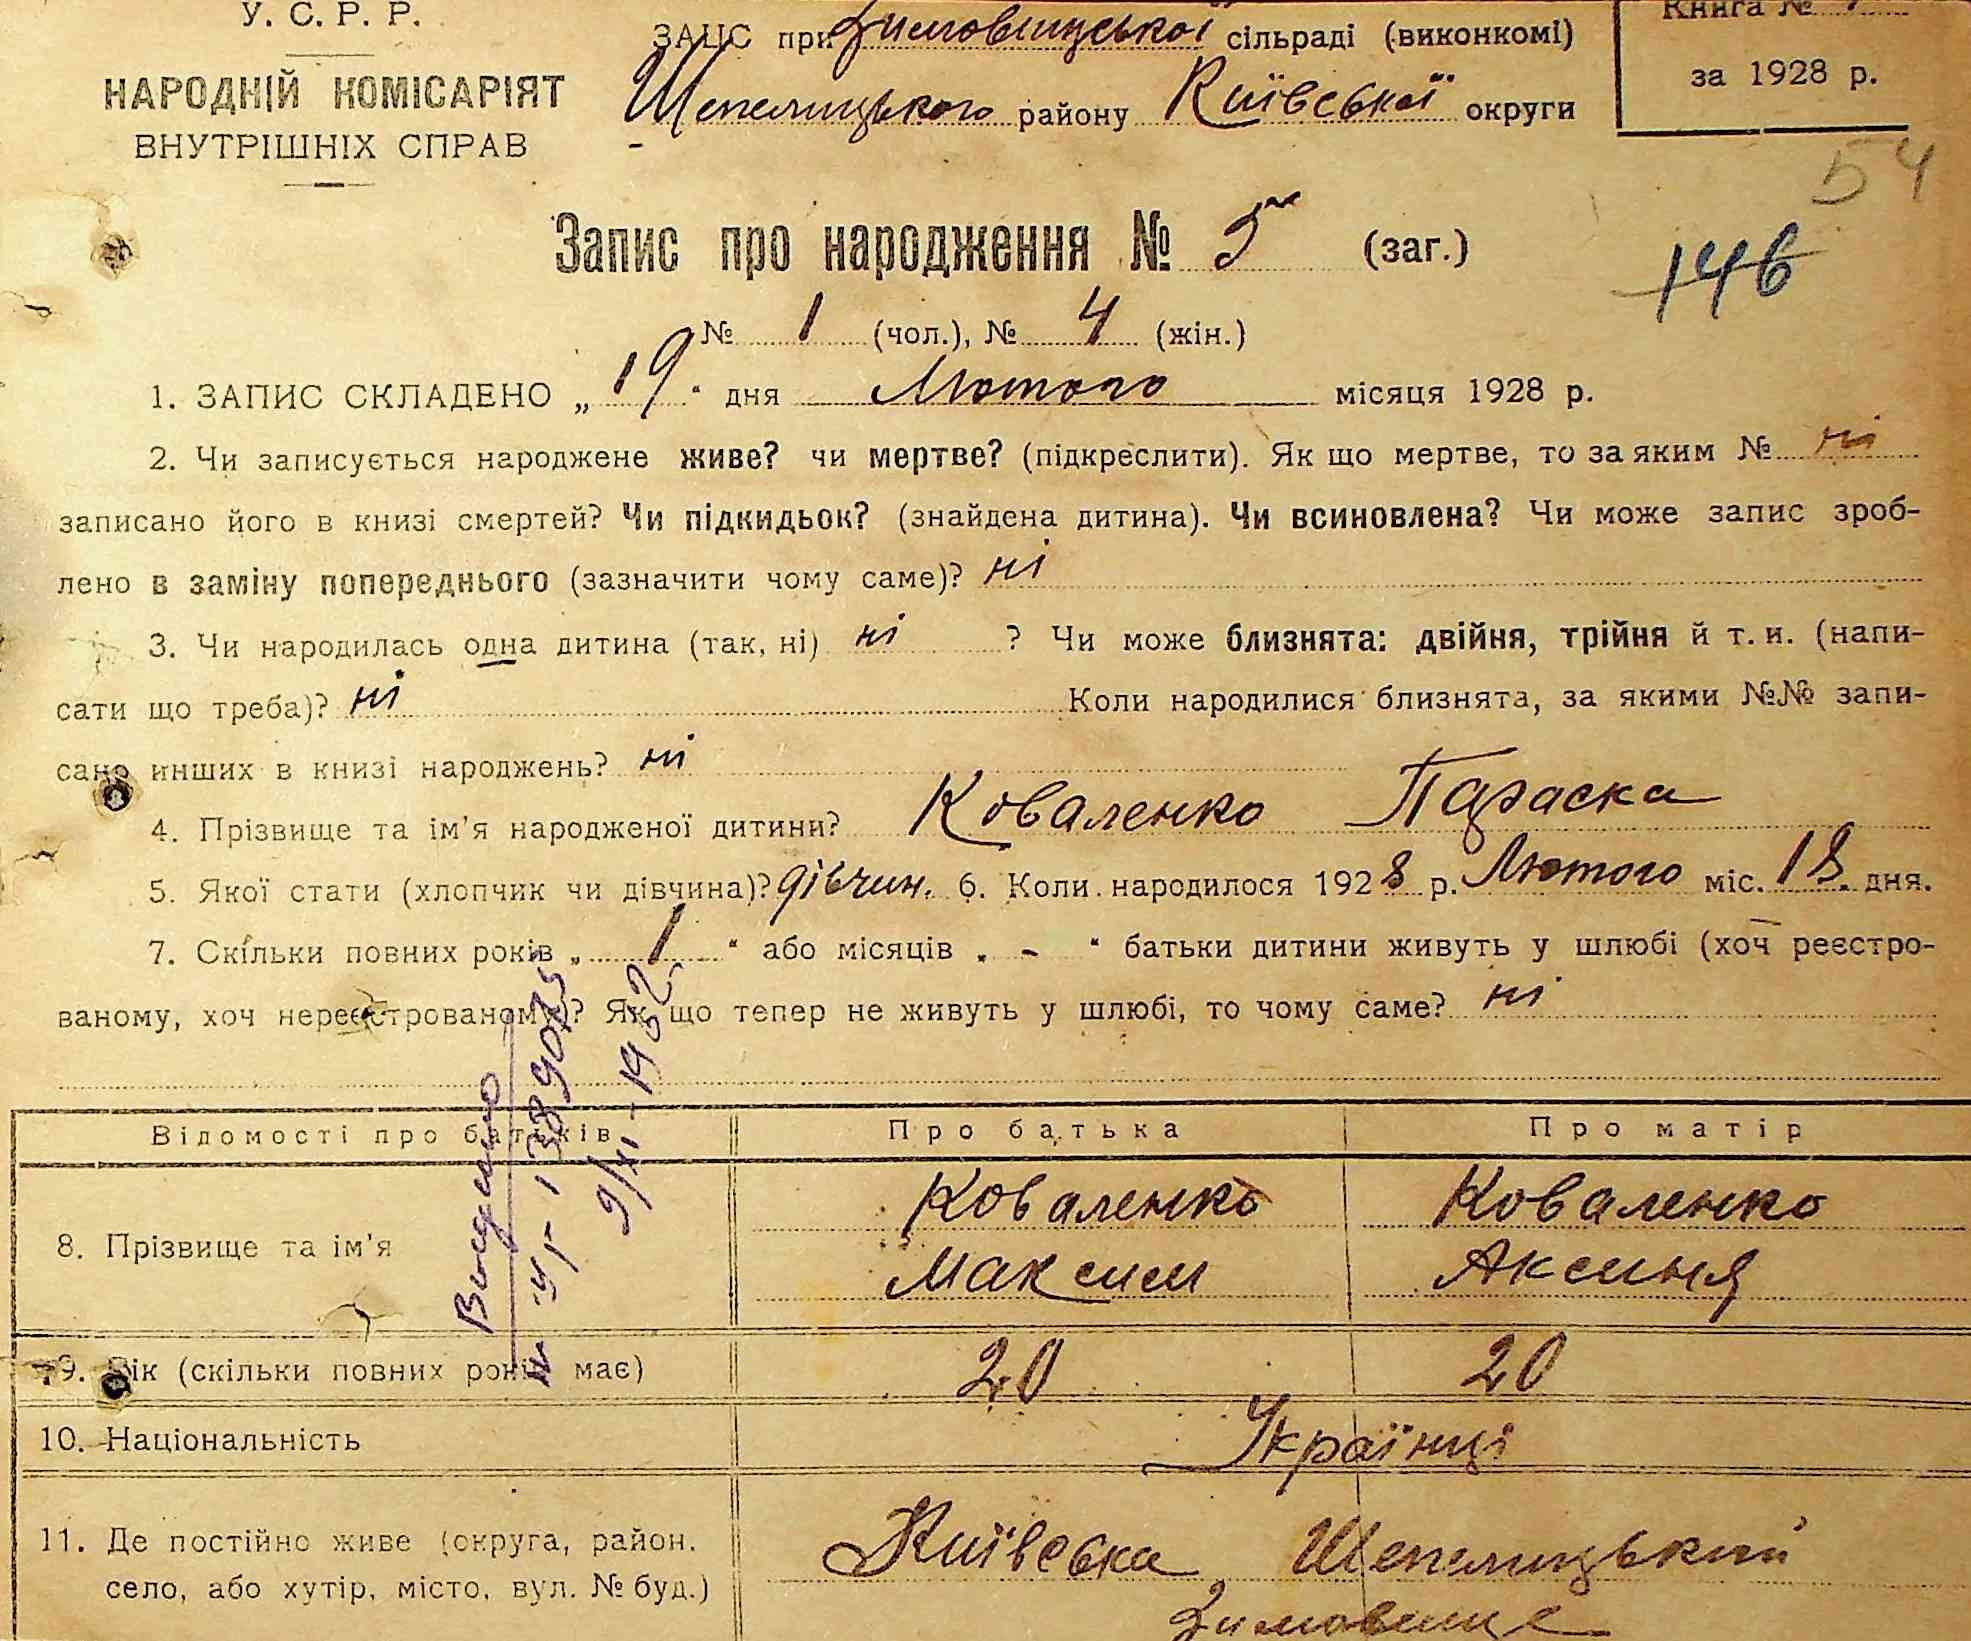 У. С. Р. Р.
НАРОДНІЙ КОМІСАРІЯТ
ВНУТРІШНІХ СПРАВ
ЗАЦС при Зимовищуської сільраді (виконкомі)
Шепелицького району Київської округи
Книга №
за 1928 р.
54
146
Запис про народження № 5 (заг.)
№ 1 (чол.), № 4 (жін.)
1. ЗАПИС СКЛАДЕНО „ 19 “ дня Лютого місяця 1928 р.
2. Чи записується народжене живе? чи мертве? (підкреслити). Як що мертве, то за яким № ні
записано його в книзі смертей? Чи підкидьок? (знайдена дитина). Чи всиновлена? Чи може запис зроб-
лено в заміну попереднього (зазначити чому саме)? ні
3. Чи народилась одна дитина (так, ні) ні ? Чи може близнята: двійня, трійня й т. и. (напи-
сати що треба)? ні Коли народилися близнята, за якими №№ запи-
сано инших в книзі народжень? ні
4. Прізвище та ім’я народженої дитини? Коваленко Параска
5. Якої стати (хлопчик чи дівчина)? дівчин. 6. Коли народилося 1928 р. Лютого міс. 18 дня.
7. Скільки повних років „ 1 “ або місяців „ - “ батьки дитини живуть у шлюбі (хоч реєстро-
ваному, хоч нереєстрованому)? Як що тепер не живуть у шлюбі, то чому саме? ні
Відомості про батьків Про батька Про матір
8. Прізвище та ім’я
Коваленко Коваленко
Максим Аксиня
9. Вік (скільки повних років має) 20 20
10. Національність Українці
11. Де постійно живе (округа, район,
село, або хутір, місто, вул. № буд.)
Київська Шепелицький
Зимовище